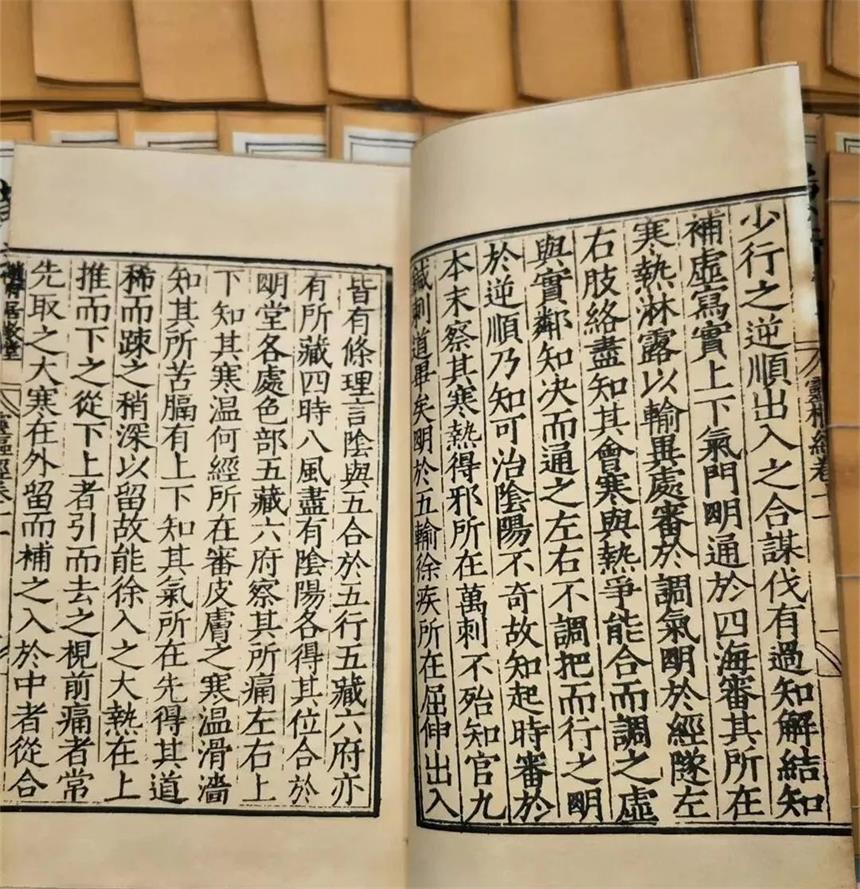 靈樞經卷十一
少行之逆順出入之合謀伐有過知解結知
補虛寫實上下氣門眀通於四海審其所在
寒熱淋露以輸異處審於調氣眀於經隧左
右肢絡盡知其會寒與熱爭能合而調之虛
與實鄰知决而通之左右不調把而行之眀
於逆順乃知可治陰陽不奇故知起時審於
本末察其寒熱得邪所在萬刺不殆知官九
鍼刺道畢矣眀於五輸徐疾所在屈伸出入
皆有條理言陰與五合於五行五藏六府亦
有所藏四時八風盡有陰陽各得其位合於
眀堂各處色部五藏六府察其所痛左右上
下知其寒温何經所在審皮膚之寒温滑濇
知其所苦膈有上下知其氣所在先得其道
稀而踈之稍深以留故能徐入之大熱在上
推而下之從下上者引而去之視前痛者常
先取之大寒在外留而補之入於中者從合